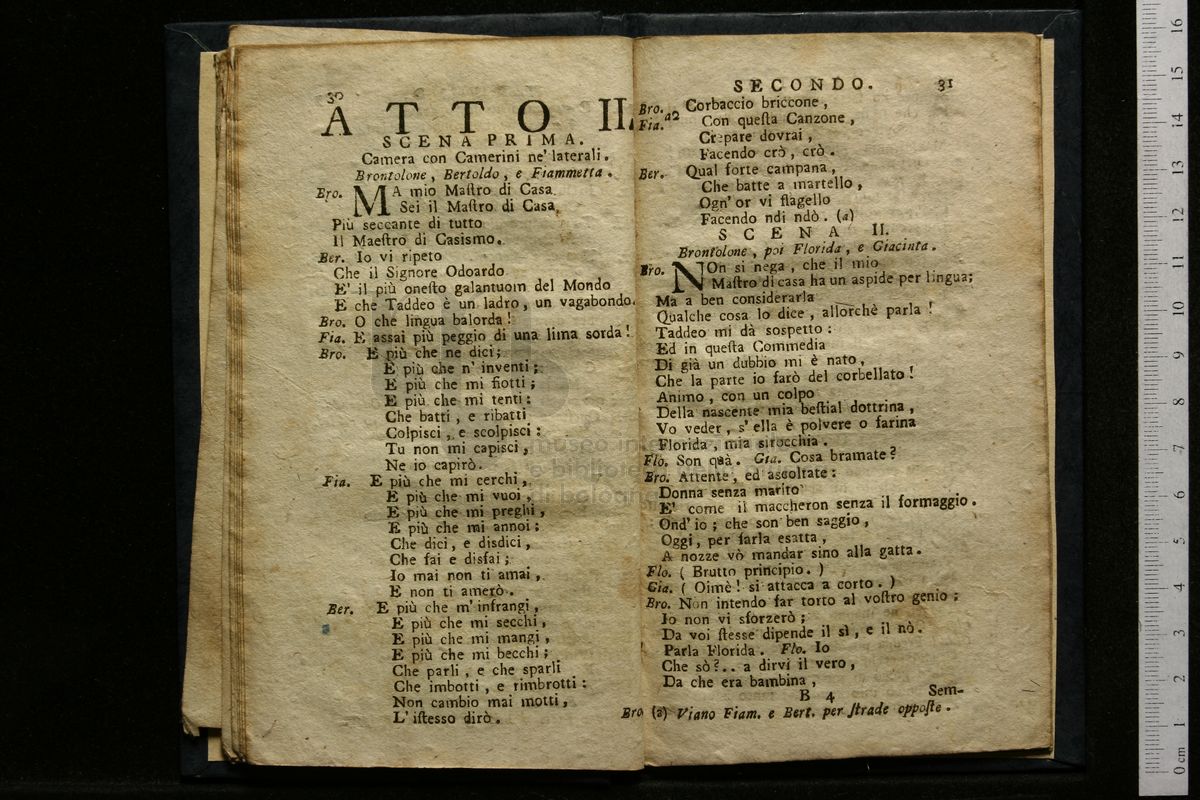 30
ATTO II.
SCENA PRIMA.
Camera con Camerini ne' laterali.
Brontolone, Bertoldo, e Fiammetta.
Bro. MA mio Maſtro di Casa
Sei il Maſtro di Casa,
Più seccante di tutto
Il Maeſtro di Casismo.
Ber. Io vi ripeto
Che il Signore Odoardo
E' il più oneſto galantuom del Mondo
E che Taddeo è un ladro, un vagabondo.
Bro. O che lingua balorda!
Fia. E assai più peggio di una lima sorda!
Bro. E più che ne dici;
E più che n' inventi;
E più che mi fiotti;
E più che mi tenti:
Che batti, e ribatti
Colpisci, e scolpisci:
Tu non mi capisci,
Ne io capirò.
Fia. E più che mi cerchi,
E più che mi vuoi,
E più che mi preghi,
E più che mi annoi:
Che dici, e disdici,
Che fai e disfai;
Io mai non ti amai,
E non ti amerò.
Ber. E più che m' infrangi,
E più che mi secchi,
E più che mi mangi,
E più che mi becchi;
Che parli, e che sparli
Che imbotti, e rimbrotti:
Non cambio mai motti,
L' iſtesso dirò.
SECONDO. 31
Bro. Fia. a2 Corbaccio briccone,
Con queſta Canzone,
Crepare dovrai,
Facendo crò, crò.
Ber. Qual forte campana,
Che batte a martello,
Ogn' or vi flagello
Facendo ndi ndò. (a)
SCENA II.
Brontolone, poi Florida, e Giacinta.
Bro. NOn si nega, che il mio
Maſtro di casa ha un aspide per lingua;
Ma a ben considerarla
Qualche cosa lo dice, allorchè parla!
Taddeo mi dà sospetto:
Ed in queſta Commedia
Di già un dubbio mi è nato,
Che la parte io farò del corbellato!
Animo, con un colpo
Della nascente mia beſtial dottrina,
Vo veder, s' ella è polvere o farina
Florida, mia sirocchia.
Flo. Son quà. Gia. Cosa bramate?
Bro. Attente, ed ascoltate:
Donna senza marito
E' come il maccheron senza il formaggio.
Ond' io; che son ben saggio,
Oggi, per farla esatta,
A nozze vò mandar sino alla gatta.
Flo. (Brutto principio.)
Gia. (Oimè! si attacca a corto.)
Bro. Non intendo far torto al voſtro genio;
Io non vi sforzerò;
Da voi ſtesse dipende il sì, e il nò.
Parla Florida. Flo. Io
Che sò?.. a dirvi il vero,
Da che era bambina,
B 4 Sem-
Bro (a) Viano Fiam. e Bert. per ſtrade oppoſte.
museo
e biblioteca
di bologna
0 cm 1 2 3 4 5 6 7 8 9 10 11 12 13 14 15 16